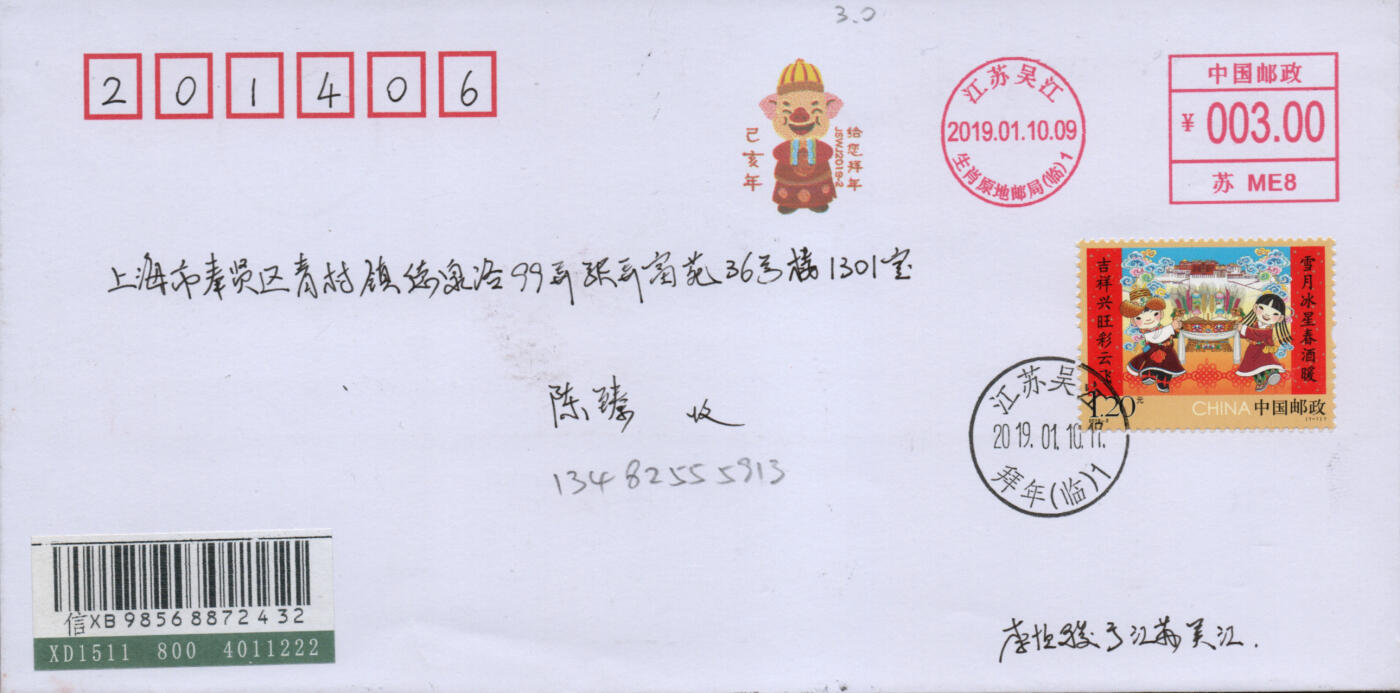 3.0
201406
己亥年
给您拜年
JSWJ2019-2
江苏吴江
2019.01.10.09
生肖原地邮局(临)1
中国邮政
¥ 003.00
苏 ME8
上海市奉贤区青村镇 99弄 36号楼1301室
吉祥兴旺彩云飞
雪月冰星春酒暖
1.20元
CHINA 中国邮政
江苏吴江
2019.01.10.17.
拜年(临)1
陈臻 收
13482555913
信XB98568872432
XD1511 800 4011222
江苏吴江.